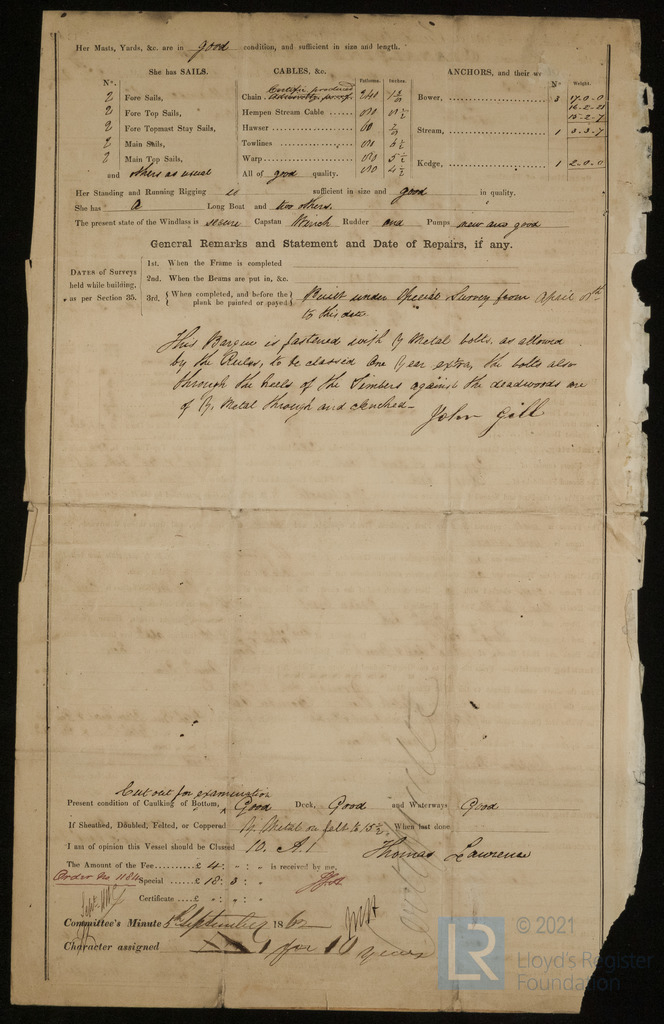 Her Masts, Yards, &c. are in good condition, and sufficient in size and length.
She has SAILS. CABLES, &c. Fathoms. Inches. ANCHORS, and their
N°. N° Weight.
2 Fore Sails,
2 Fore Top Sails,
2 Fore Topmast Stay Sails,
2 Main Sails,
2 Main Top Sails,
and others as usual
Certific produced
Chain 240 1
Hempen Stream Cable
Hawser 60
Towlines
Warp
All of good quality.
Bower, 3 17.0.0
16.2.21
15.2.7
Stream, 1 3.3.7
Kedge, 1 2.0.0
Her Standing and Running Rigging is sufficient in size and good in quality.
She has a Long Boat and two others.
The present state of the Windlass is secure Capstan Winch Rudder and Pumps new and good
General Remarks and Statement and Date of Repairs, if any.
DATES of Surveys held while building, as per Section 35.
1st. When the Frame is completed
2nd. When the Beams are put in, &c.
3rd. { When completed, and before the plank be painted or payed } Built under Special Survey from April
to this date
This Barque is fastened with Y Metal bolts, as allowed
by the Rules, to be classed One Year extra, the bolts also
through the heels of the Timbers against the deadwoods are
of Y. Metal through and clenched—
John Gill
Cut out for examination
Present condition of Caulking of Bottom, Good Deck, Good and Waterways Good
If Sheathed, Doubled, Felted, or Coppered Y. Metal on felt When last done
I am of opinion this Vessel should be Classed 10. A.1
Thomas Lawrence
The Amount of the Fee £ 4 : " : " is received by me,
Order No Special £ 18 : 3 : "
Certificate £ " : " : "
Committee's Minute 5th September 186
Character assigned for 10 years
© 2021
LR
Lloyd's Register
Foundation